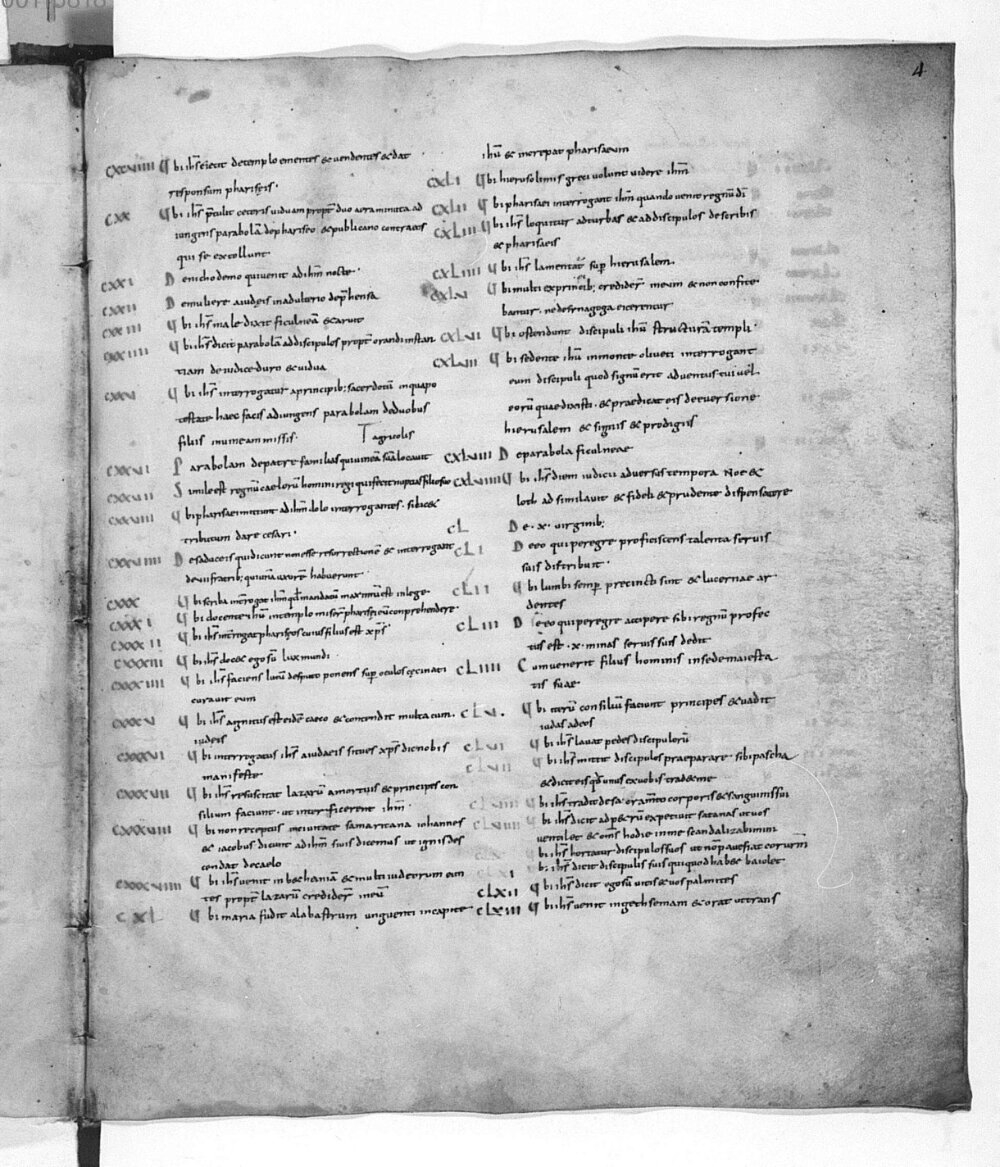 4
CXVIIII Ubi ihs eiecit de templo ementes & vendentes & dat
responsum phariseis.
CXX Ubi ihs p̄tulit ceteris viduam propt̄ duo aera minuta ad
iungens parabolā de phariseo & publicano contra eos
qui se extollunt
CXXI De nichodemo qui venit ad ihm nocte.
CXXII De muliere a iudeis in adulterio dep̄hensa
CXXIII Ubi ihs maledixit ficulneā & aruit
CXXIIII Ubi ihs dicit parabolā ad discipulos propt̄ orandi instan
tiam de iudice duro & vidua
CXXV Ubi ihs interrogatur a principib; sacerdotū in qua po
testate haec facis adiungens parabolam de duobus
filiis in vineam missis.
T agricolis
CXXVI Parabolam de patre familias qui vineā suā locavit
CXXVII Simile est regnū caelorū homini regi qui fecit nuptias filio suo
CXXVIII Ubi pharisaei mittunt ad ihm dolo interrogantes. si lic&
tributum dare cesari.
CXXVIIII De saduceis qui dicunt non esse resurrectionē & interrogant
de vii fratrib; qui unā uxorē habuerunt.
CXXX Ubi scriba int̄rogat ihm qd mandatū maximū est in lege.
CXXXI Ubi docente ihu in templo miser̄ pharisei eū conprehendere.
CXXXII Ubi ihs int̄rogat phariseos cuius filius est xps
CXXXIII Ubi ihs doc& ego sū lux mundi.
CXXXIIII Ubi ihs faciens lutū de sputo ponens sup̄ oculos ceci nati
curavit eum
CXXXV Ubi ihs agnitus est eidē caeco & contendit multa cum
iudeis
CXXXVI Ubi interrogatus ihs a iudaeis si tu es xps dic nobis
manifeste
CXXXVII Ubi ihs resuscitat lazarū a mortuis & principes con
silium faciunt. ut interficerent ihm.
CXXXVIII Ubi non receptus in civitate samaritana iohannes
& iacobus dicunt ad ihm si vis dicemus ut ignis des
cendat de caelo
CXXXVIIII Ubi ihs venit in bethaniā & multi iudeorum eun
tes propt̄ lazarū crediderī in eū
CXL Ubi maria fudit alabastrum unguenti in capite
ihu & increpat pharisaeum
CXLI Ubi hierusolimis greci volunt videre ihm
CXLII Ubi pharisaei interrogant ihm quando venit regnū dī
CXLIII Ubi ihs loquitur ad turbas & ad discipulos de scribis
& pharisaeis
CXLIIII Ubi ihs lamentat̄ sup̄ hierusalem.
CXLV Ubi multi ex principib; credider̄ in eum & non confite
bantur. ne de synagoga eicerentur
CXLVI Ubi ostendunt discipuli ihu structurā templi.
CXLVII Ubi sedente ihu in monte oliveti interrogant
eum discipuli quod signū erit adventus tui vel
eorū quae dixisti. & praedicat eis de eversione
hierusalem & signis & prodigiis
CXLVIII De parabola ficulneae
CXLVIIII Ubi ihs diem iudicii adversis tempora Noe &
loth adsimilavit & fideli & prudente dispensatore
CL De .x. virginib;
CLI De eo qui peregre proficiscens talenta servis
suis distribuit.
CLII Ubi lumbi semp̄ precincti sint & lucernae ar
dentes
CLIII De eo qui peregre accipere sibi regnū profec
tus est. x. minas servis suis dedit
CLIIII Cum venerit filius hominis in sede maiesta
tis suae
CLV. Ubi iterū consiliū faciunt principes & vadit
iudas ad eos
CLVI Ubi ihs lavat pedes discipulorū
CLVII Ubi ihs mittit discipulos praeparare sibi pascha
& dicit eis qd unus ex vobis trad& me
CLVIII Ubi ihs tradit de sacramto corporis & sanguinis sui
CLVIIII Ubi ihs dicit ad p&rū expetivit satanas ut vos
ventilet & oms hodie in me scandalizabimini
CLX Ubi ihs hortatur discipulos suos ut non paveat cor vrm
I Ubi ihs dicit discipulis suis qui quod hab& baiolet
CLXII Ubi ihs dicit ego sū vitis & vos palmites
CLXIII Ubi ihs venit in gethsemani & orat ut trans